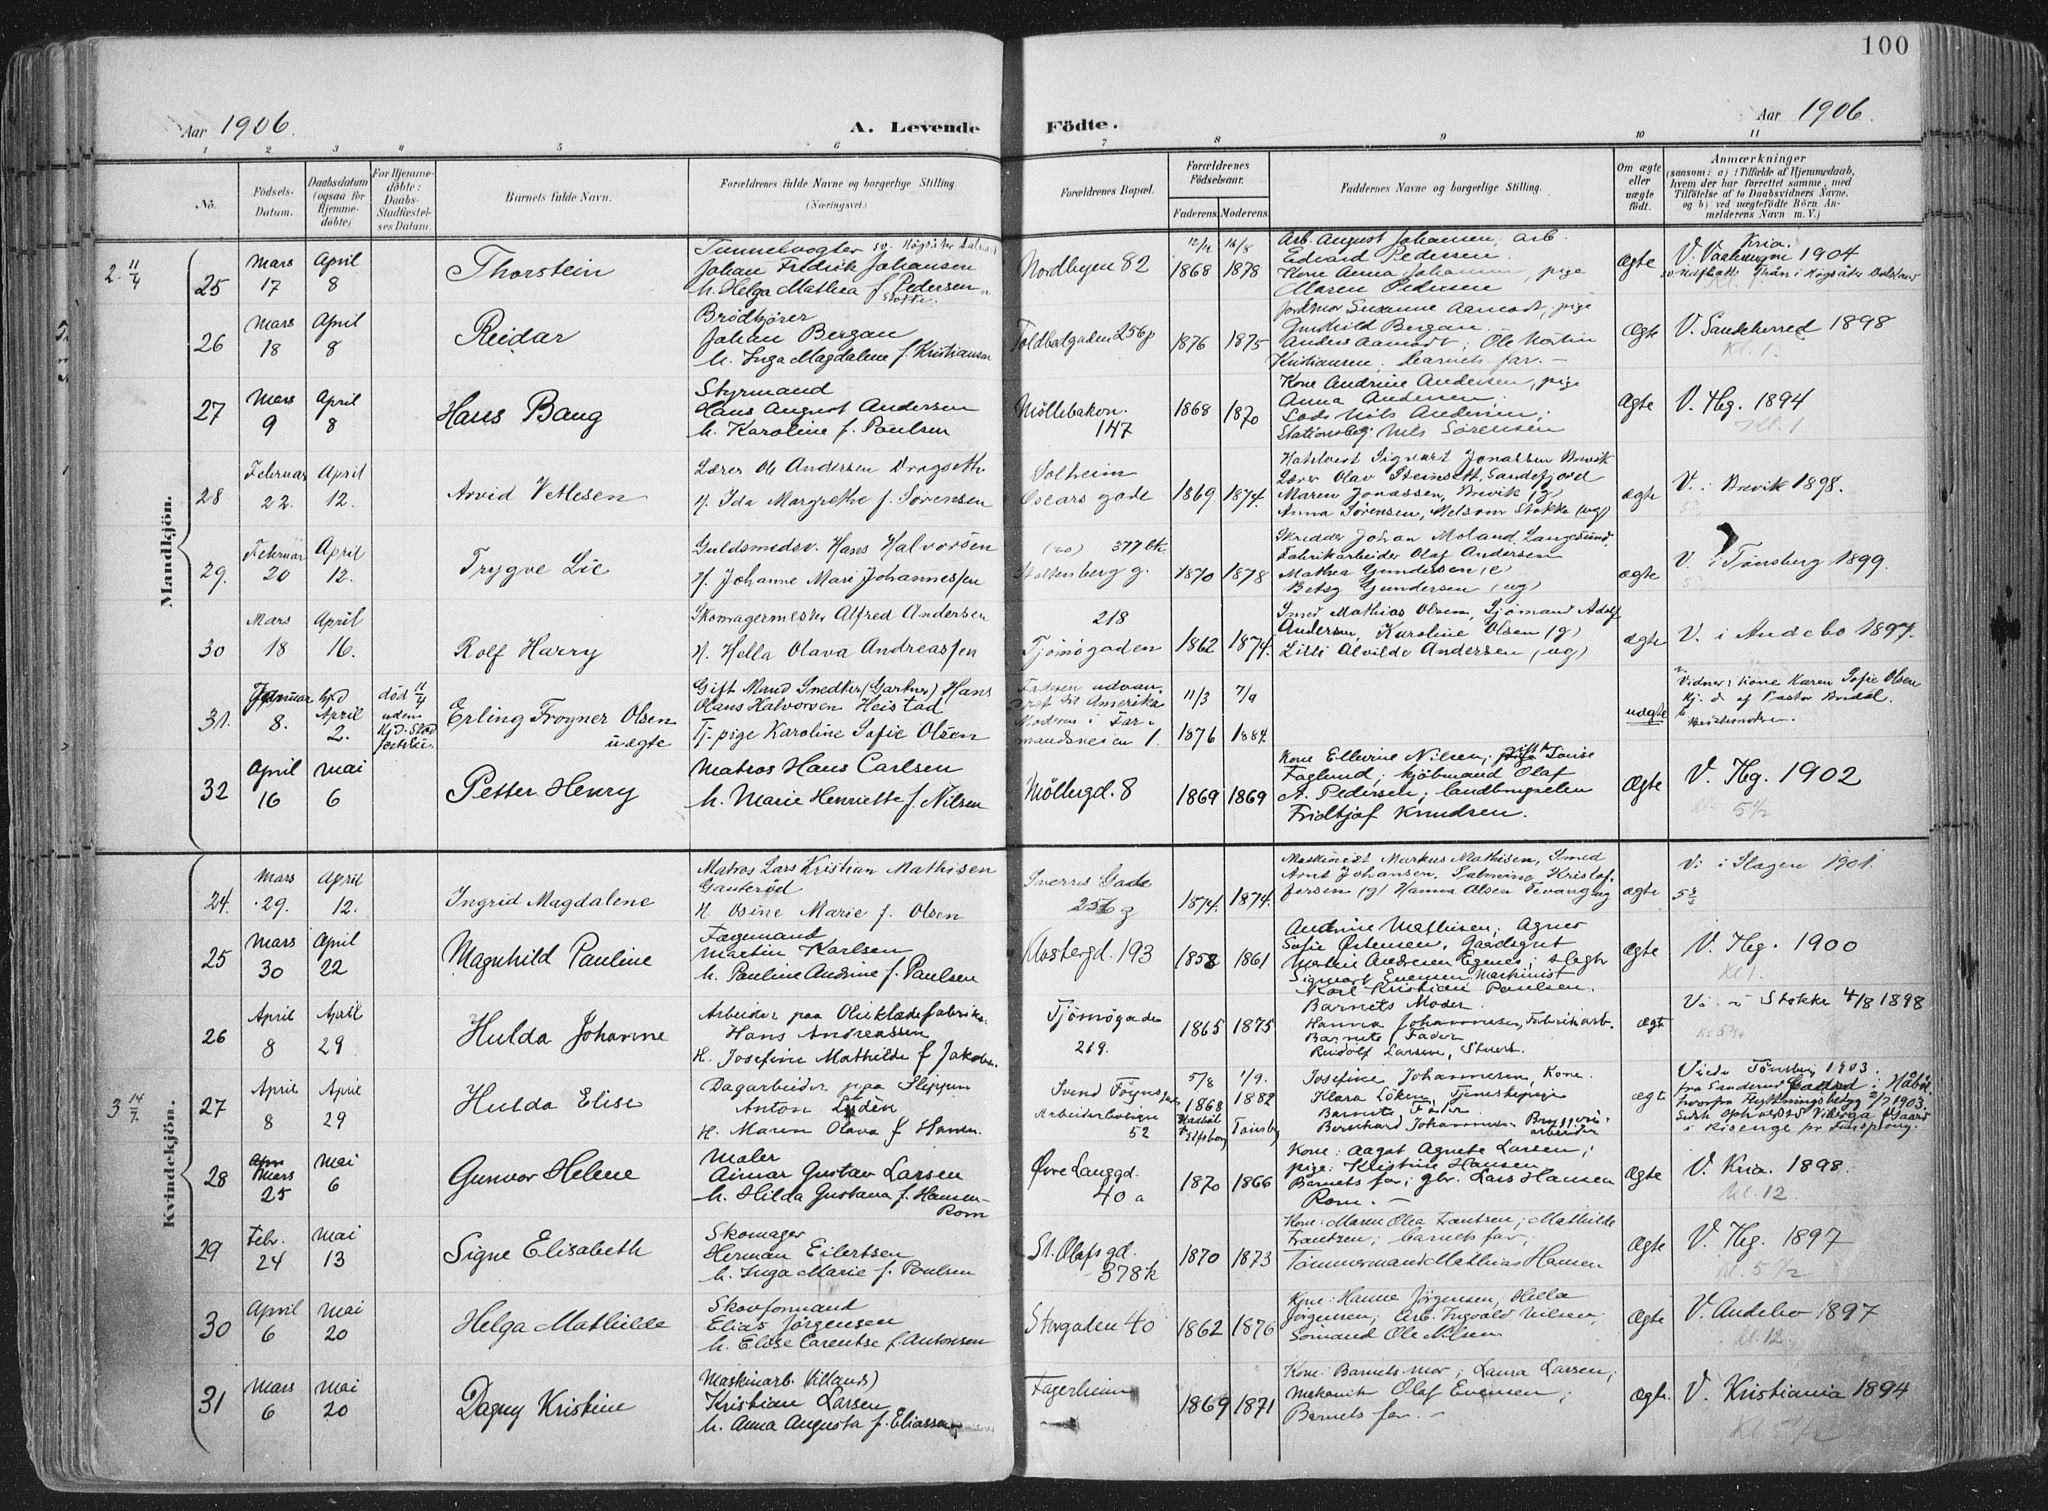 100
Aar 1906.
A. Levende Födte.
Aar 1906.
1 2 3 4 5 6 7 8 9 10 11
No.
Födsels-
Datum.
Daabsdatum
(ogsaa for
Hjemme-
döbte)
For Hjemme-
döbte:
Daabs-
Stadfæstel-
ses Datum.
Barnets fulde Navn.
Forældrenes fulde Navne og borgerlige Stilling
(Næringsvei.)
Forældrenes Bopæl.
Forældrenes
Födselsaar.
Faderens. Moderens.
Faddernes Navne og borgerlige Stilling.
Om ægte
eller
uægte
födt.
Anmærkninger
(saasom: a) i Tilfælde af Hjemmedaab,
hvem der har forrettet samme, med
Tilföielse af to Daabsvidners Navne.
og b) ved uægtefödte Börn An-
melderens Navn m. V.)
Mandkjön.
2. 11/4
25
Mars
17
April
8
Thorstein
Tunnelvogter
Johan Fredrik Johansen
h. Helga Mathea f. Pedersen
Nordbyen 82
1868 1878
Arb. August Johansen; arb.
Edvard Pedersen
Kone Anna Johansen, pige
Maren Pedersen
ægte
Kria.
1904
26
Mars
18
April
8
Reidar
Brödkjörer
Johan Bergan
h. Inga Magdalene f. Kristiansen
Toldbodgaden 256
1876 1875
Jordmor Susanne Aamodt; pige
Gunhild Bergan
Anders Aamodt; Ole Martin
Kristiansen; barnets far. –
Ægte
V. Sandeherred 1898
Kl. 1.
27
Mars
9
April
8
Hans Bang
Styrmand
Hans August Andersen
h. Karoline f. Paulsen
Möllebakken.
147
1868 1870
Kone Andrine Andersen, pige
Anna Andersen;
Lods Nils Andersen;
Stationsbetj. Nils Sörensen
Ægte
V. Tbg. 1894
Kl. 1
28
Februar
22.
April
12.
Arvid Vetlesen
Lærer Ole Andersen Dragseth
H. Ida Margrethe f. Sørensen
Solheim
Oscars gade
1869. 1874.
Sigvart Jonassen Brevik
Lærer Olav Steinsett, Sandefjord
Maren Jonassen, Brevik (g)
Anna Sørensen, Melsom Stokke (ug)
ægte
V. i Brevik 1898.
29.
Februar
20
April
12.
Trygve Lie
Guldsmedsv. Hans Halvorsen
H. Johanne Marie Johannessen
377
Stoltenberg g.
1870 1878
Skrædder Johan Moland, Langesund,
Fabrikarbeider Olaf Andersen
Mathea Gundersen (e)
Betsy Gundersen (ug)
ægte
V. i Tønsberg 1899.
30
Mars
18
April
16.
Rolf Harry
Skomagermester Alfred Andersen
H. Hella Olava Andreassen
218
Tjömøgaden
1862 1874.
Smed Mathias Olsen, Sjömand Adolf
Andersen, Karoline Olsen (g)
Lilli Alvilde Andersen (ug)
ægte
V. i Andebo 1897.
31.
Januar
8.
hjd
April
2.
död 11/4
uden
Kj.d. Stad
fæstelse.
Erling Frogner Olsen
uægte
Gift Mand Snedker (Gartner) Hans
Olaus Halvorsen Heistad
Tj. pige Karoline Sofie Olsen
Faderen udvan-
dret til Amerika
Moderen i Far-
mandsveien 1.
11/3 7/9
1876 1884.
uægte
Vidner: Kone Karen Sofie Olsen
Hj. d. af Pastor Bridal
32
April
16
Mai
6
Petter Henry
Matros Hans Carlsen
h. Marie Henriette f. Nilsen
Möllergd. 8
1869 1869
Kone Ellevine Nilsen; gift k Louise
Faglund; kjöbmand Olaf
A. Pedersen; landbrugselev
Fridtjof Knudsen.
Ægte
V. Tbg. 1902
Kl. 5 1/2
Kvindekjön.
24.
Mars
29.
April
12.
Ingrid Magdalene
Matros Lars Kristian Mathisen
Gauterød
H. Osine Marie f. Olsen
Sverres Gade
256 g
1874. 1874.
Maskinist Markus Mathisen, Smed
Arnt Johansen, Salmine Kristof-
fersen (g) Hanna Olsen Tevang ug
ægte
V. i Slagen 1901.
25
Mars
30
April
22
Magnhild Pauline
Færgemand
Martin Karlsen
h. Pauline Andrine f. Paulsen
Klostergd. 193
1858 1861
Andrine Mathisen; Agnes
Sofie Østensen, Gaardsgut
Martin Andersen Egenes;
Sigmart Evensen, Maskinist
Karl Kristian Paulsen.
Ægte
V. Tbg. 1900
Kl. 1.
26
April
8
April
29
Hulda Johanne
Arbeider paa Olieklædefabrike
Hans Andreassen
H. Josefine Mathilde f Jakobsen
Tjömøgade
219.
1865 1875
Barnets Moder
Hanna Johannesen, Fabrikarb.
Barnets Fader
Rudolf Larsen, Stuert.
ægte
V. i Stokke 4/8 1898
3 14/7
27
April
8
April
29
Hulda Elise
Dagarbeider paa Slippen
Anton Lydén
H. Maren Olava f Hansen
Svend Foyns
Arbeiderbolig
52
5/8 1/9.
1868 1882
Tönsberg
Josefine Johannesen, Kone
Klara Löken, Tjenestepige
Barnets Fader
Bernhard Johannesen Bryggeri-
arbeider
ægte
Viede Tönsberg 1903.
28
Mars
25
Mai
6
Gunvor Helene
Maler
Aimar Gustav Larsen
h. Hilda Gustava f. Hansen-
Rom
Övre Langgd.
40 a
1870 1866
Kone: Aagot Agnete Larsen;
pige: Kristine Hansen
Barnets far; gbr. Lars Hansen
Rom. –
Ægte
V. Kria. 1898.
Kl. 12.
29
Febr.
24
Mai
13
Signe Elisabeth
Skomager
Herman Eilertsen
h. Inga Marie f. Paulsen
St. Olafs gd.
378 k
1870 1873
Kone: Maren Olea Frantsen; Mathilde
Frantzen; barnets far;
Tömmermand Mathias Hansen
Ægte
V. Tbg. 1897
Kl. 5 1/2
30
April
6
Mai
20
Helga Mathilde
Skovformand
Elias Jörgensen
h. Elise Carentse f. Antonsen
Storgaden 40
1862 1876
Kone: Hanne Jörgensen, Hella
Jörgensen; Arb. Ingvald Nilsen;
Sömand Ole Nilsen
Ægte
V. Andebo 1897
Kl. 12
31
Mars
6
Mai
20
Dagny Kristine
Maskinarb. (Villands)
Kristian Larsen
h. Anna Augusta f. Eliassen
Fagerheim
1869 1871
Kone: Barnets mor; Laura Larsen;
Mekanik Olaf Evensen;
Barnets far. –
Ægte
V. Kristiania 1894